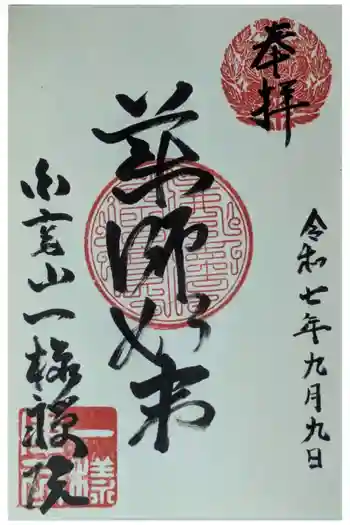 奉拝
令和七年九月九日
薬師如来
山一様禅院
一様